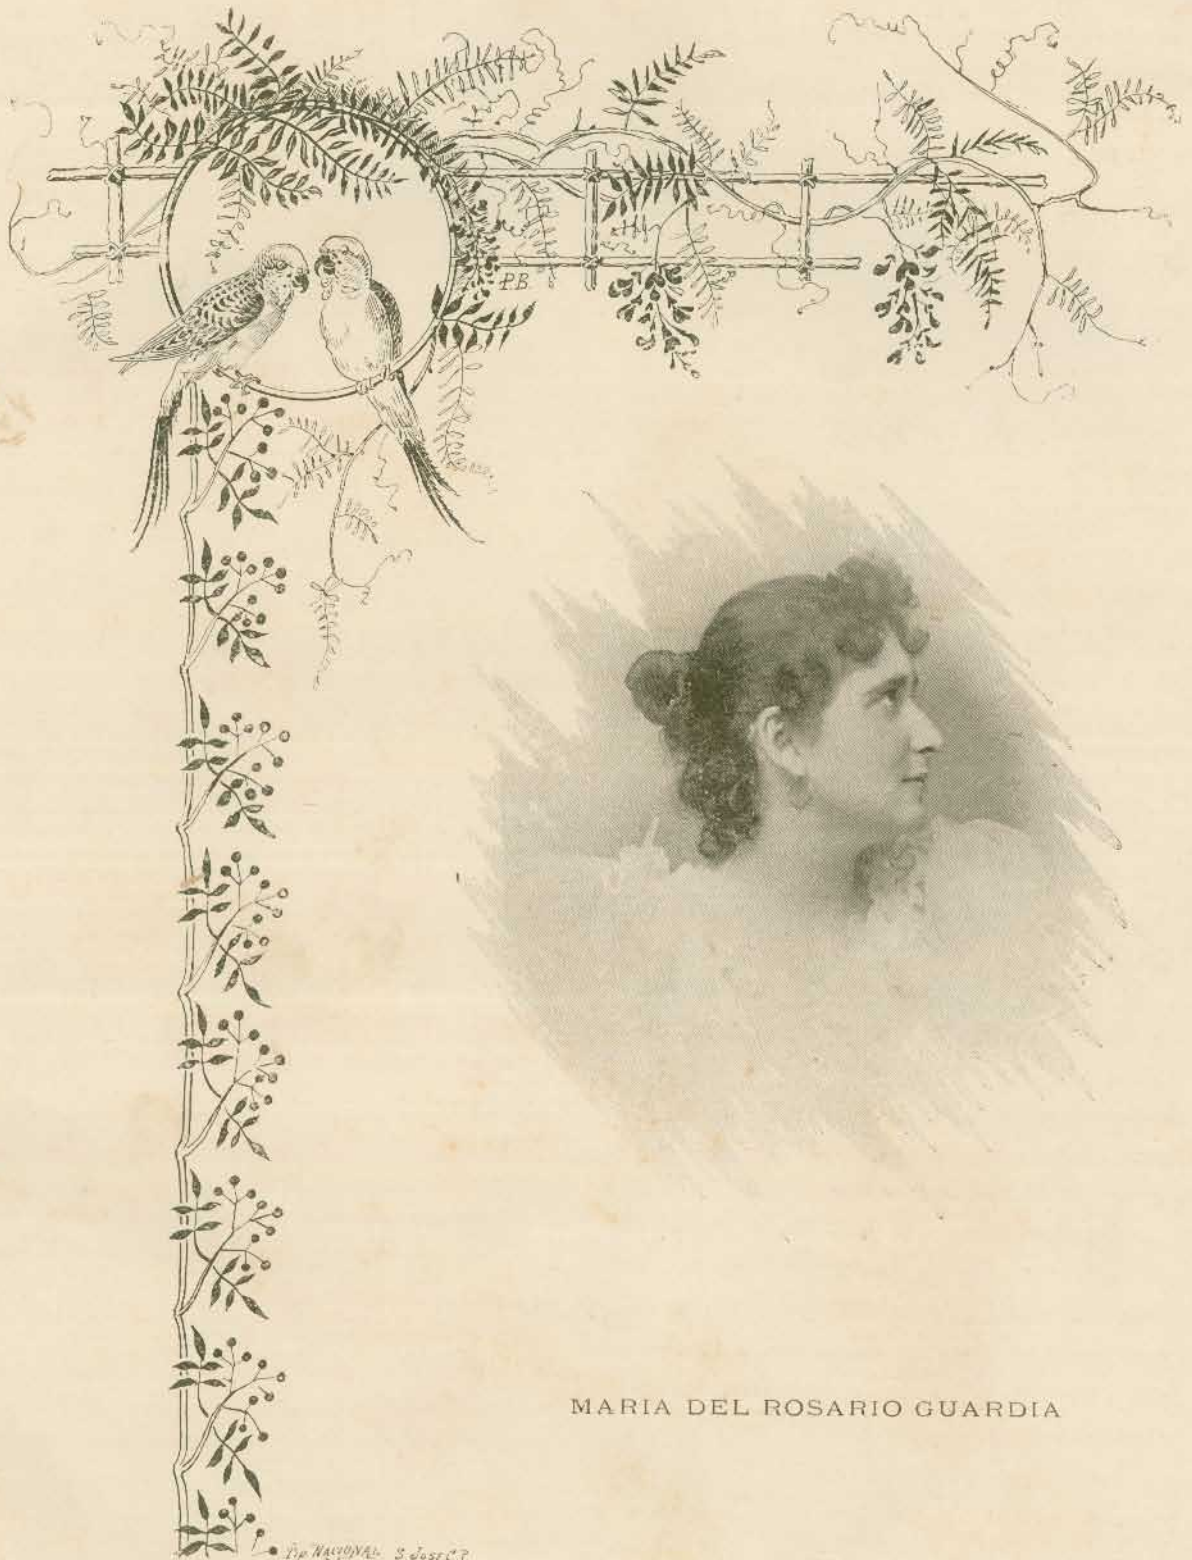 P.B
MARIA DEL ROSARIO GUARDIA
Tip. NACIONAL S. José C.R